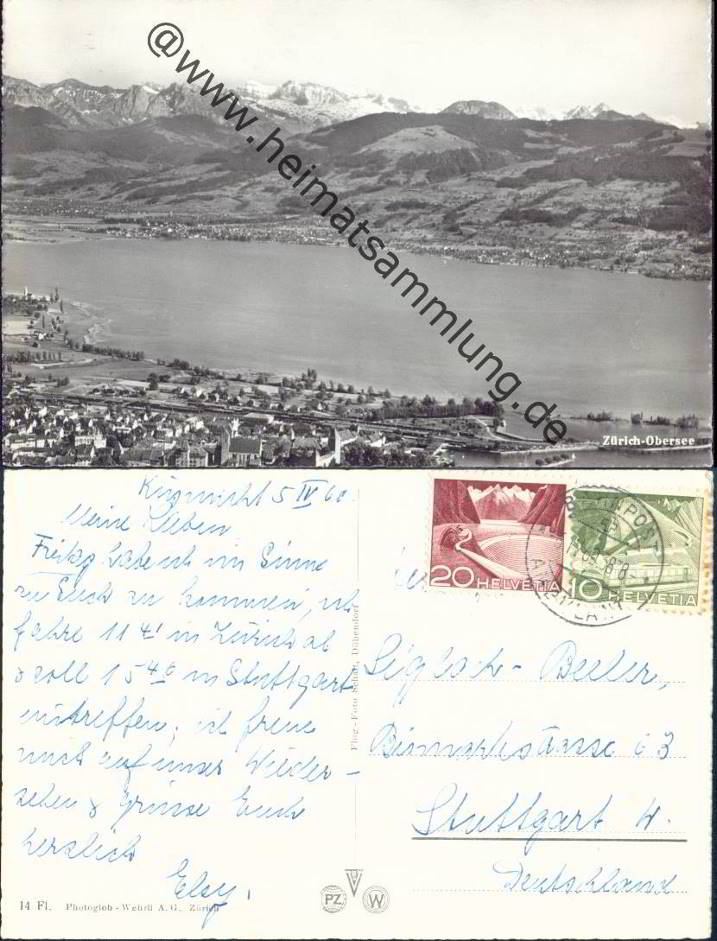 @www.heimatsammlung.de
Zürich-Obersee
5 IV 60
Meine Lieben
Freitag habe ich im Sinne
zu Euch zu kommen, ich
fahre 11 41 in Zürich ab
& soll 15 46 in Stuttgart
eintreffen; ich freue
mich auf unser Wieder-
sehen & Grüsse Euch
herzlich
Elsy.
14 Fl. Photoglob-Wehrli A.G., Zürich
Dübendorf
PZ
W
20 HELVETIA
10 HELVETIA
BAHNPOST
AMBULANT
Bismarkstrasse 63
Stuttgart W.
Deutschland